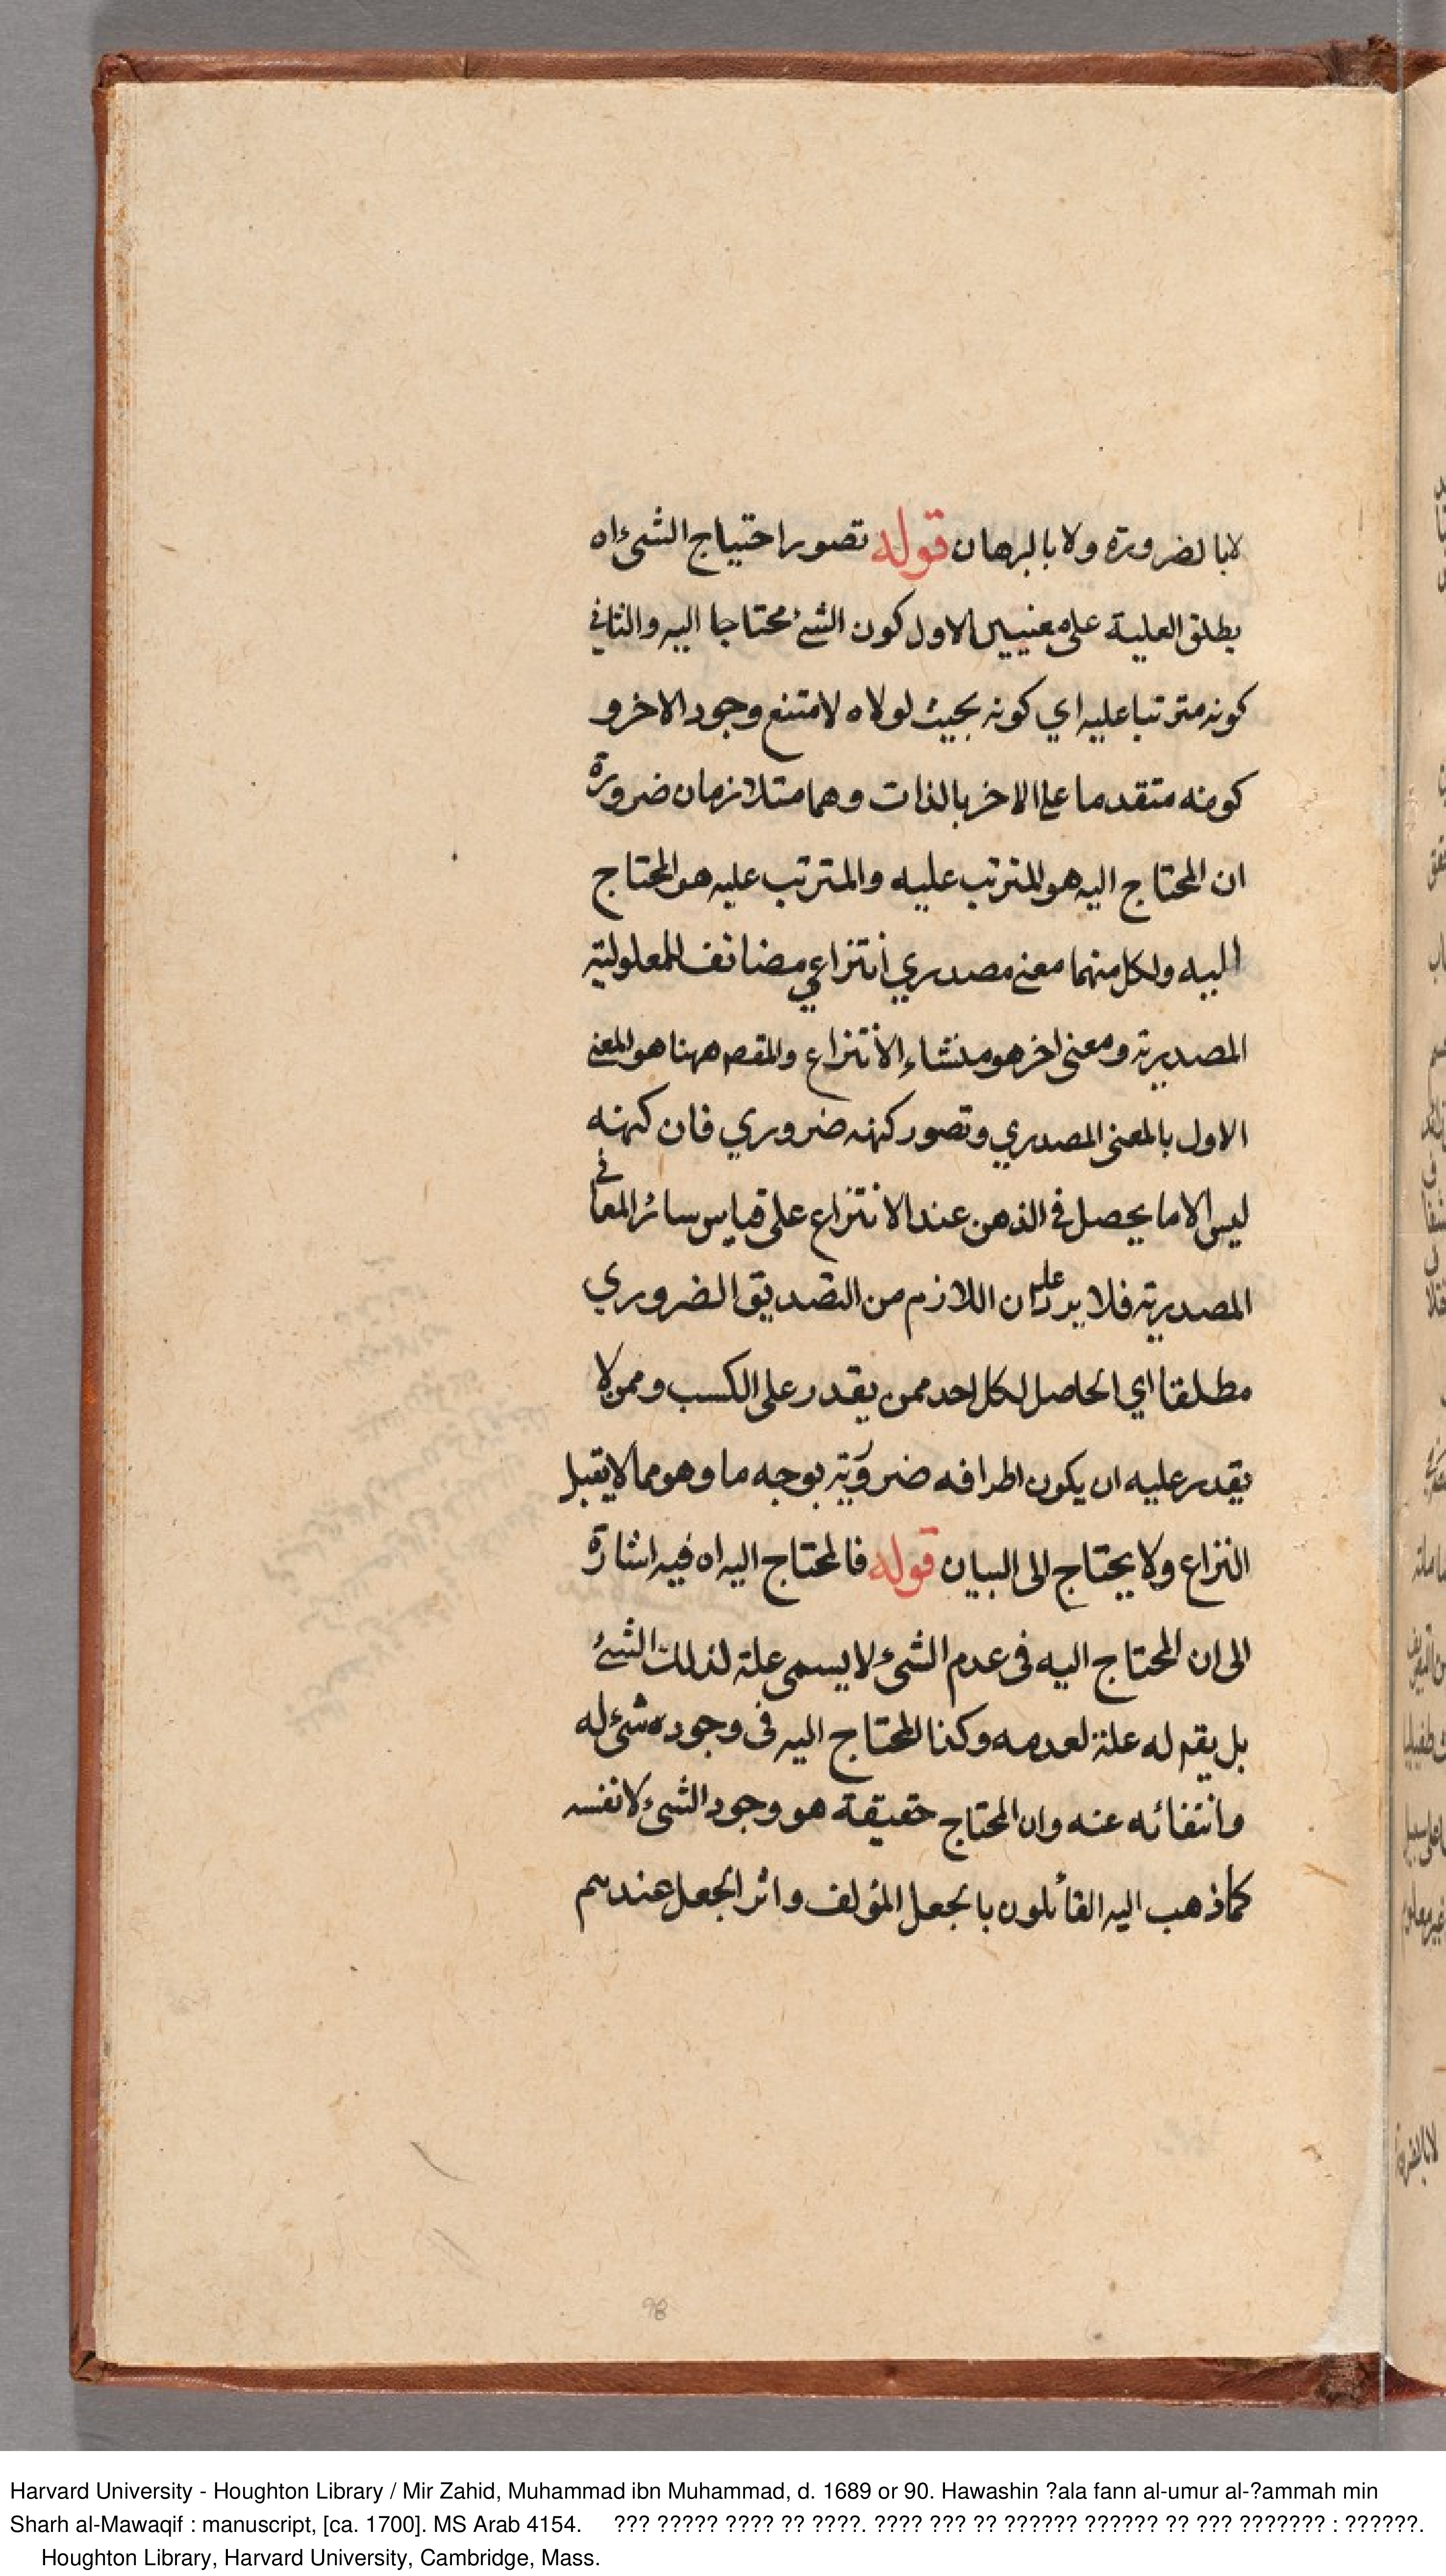 لابالضرورة ولا بالبرهان قوله تصور احتياج الشيء اه
يطلق العلية على معنيين الاول كون الشئ محتاجا اليه والثاني
كونه مترتبا عليه اي كونه بحيث لولاه لامتنع وجود الاخر و
كونه متقدما على الاخر بالذات وهما متلازمان ضرورة
ان المحتاج اليه هو المترتب عليه والمترتب عليه هو المحتاج
اليه ولكل منهما معنى مصدري انتزاعي مضائف للمعلولية
المصدرية ومعنى اخر هو منشاء الانتزاع والمقصم ههنا هو المعنى
الاول بالمعنى المصدري وتصور كنهه ضروري فان كنهه
ليس الا ما يحصل في الذهن عند الانتزاع على قياس سائر المعاني
المصدرية فلا يرد عليه ان اللازم من التصديق الضروري
مطلقا اي الحاصل لكل احد ممن يقدر على الكسب وممن لا
يقدر عليه ان يكون اطرافه ضرورية بوجه ما وهو مما لا يقبل
النزاع ولا يحتاج الى البيان قوله فالمحتاج اليه اه فيه اشارة
الى ان المحتاج اليه في عدم الشيء لا يسمى علة لذلك الشئ
بل يقم له علة لعدمه وكذا المحتاج اليه في وجوده شيء له
وانتفائه عنه وان المحتاج حقيقة هو وجود الشيء لا نفسه
كما ذهب اليه القائلون بالجعل المؤلف واثر الجعل عندهم
98
Harvard University - Houghton Library / Mir Zahid, Muhammad ibn Muhammad, d. 1689 or 90. Hawashin ?ala fann al-umur al-?ammah min
Sharh al-Mawaqif : manuscript, [ca. 1700]. MS Arab 4154. ??? ????? ???? ?? ????. ???? ??? ?? ?????? ?????? ?? ??? ??????? : ??????.
Houghton Library, Harvard University, Cambridge, Mass.